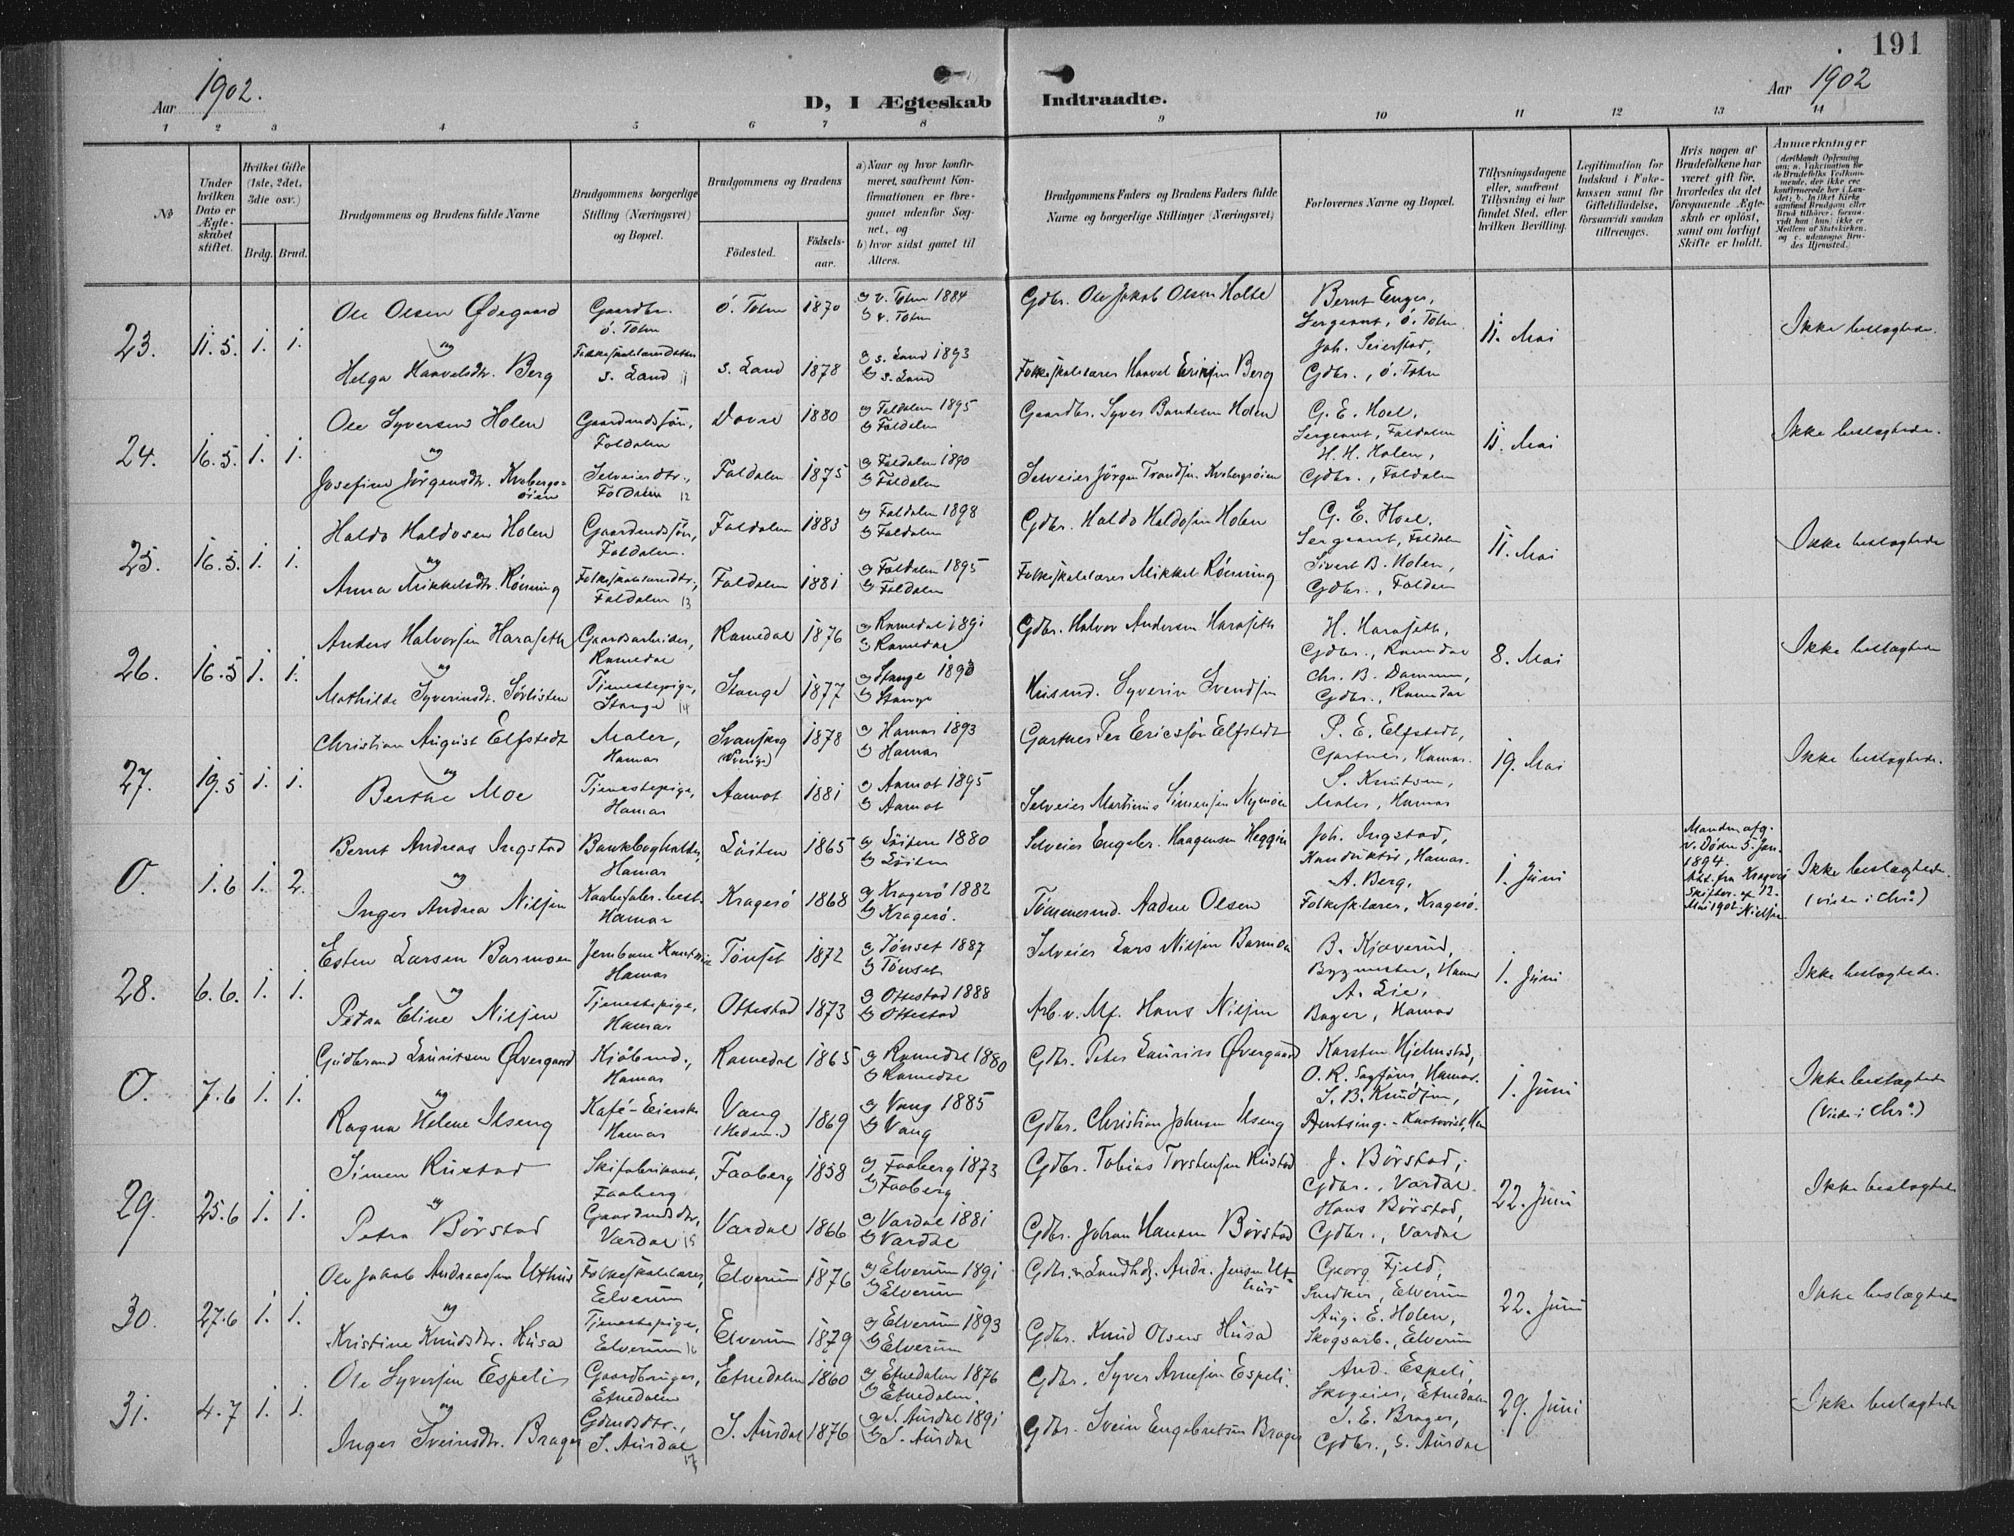 191
Aar 1902.
D, I Ægteskab Indtraadte.
Aar 1902
1 2 3 4 5 6 7 8 9 10 11 12 13 14
№
Under hvilken Dato er Ægteskabet stiftet.
Hvilket Gifte (1ste, 2det, 3die osv.)
Brdg. Brud.
Brudgommens og Brudens fulde Navne
Brudgommens borgerlige Stilling (Næringsvei) og Bopæl.
Brudgommens og Brudens
Fødested.
Fødselsaar.
a) Naar og hvor konfirmeret, saafremt Konfirmationen er foregaaet udenfor Sognet, og
b) hvor sidst gaaet til Alters.
Brudgommens Faders og Brudens Faders fulde Navne og borgerlige Stillinger (Næringsvei)
Forlovernes Navne og Bopæl.
Tillysningsdagene eller, saafremt Tillysning ei har fundet Sted, efter hvilken Bevilling.
Legitimation for Indskud i Enkekassen samt for Giftetilladelse, forsaavidt saadan tiltrænges.
Hvis nogen af Brudefolkene har været gift før, hvorledes da det foregaaende Ægteskab er opløst, samt om lovligt Skifte er holdt.
Anmærkninger
23. 11.5. 1. 1.
Ole Olsen Ødegaard
Gaardbr. Ö. Toten
Ö. Toten 1870
a) V. Toten 1884
b) V. Toten
Gdbr. Ole Jakob Olsen Holte
Bernt Enger,
Sergeant, Ö. Toten
11. Mai
Ikke beslægtede.
og
Helga Haavelsdtr. Berg
S. Land 11
S. Land 1878
a) S. Land 1893
b) S. Land
Folkeskolelærer Haavel Eriksen Berg
Joh. Seierstad,
Gdbr., Ö. Toten
24. 16.5. 1. 1.
Ole Syversen Holen
Gaardmandssøn, Foldalen
Dovre 1880
a) Foldalen 1895
b) Foldalen
Gaardbr. Syver Holen
G. E. Hoel,
Sergeant, Foldalen
11. Mai
Ikke beslægtede.
og
Josefine Jörgensdtr. Kvebergsöien
Selveierdtr., Foldalen 12
Foldalen 1875
a) Foldalen 1890
b) Foldalen
Selveier Jörgen Trondsen Kvebergsöien
H. H. Holen,
Gdbr., Foldalen
25. 16.5. 1. 1.
Haldo Haldosen Holen
Gaardmandssøn, Foldalen.
Foldalen 1883
a) Foldalen 1898
b) Foldalen
Gdbr. Haldo Haldosen Holen
G. E. Hoel,
Sergeant, Foldalen
11. Mai
Ikke beslægtede
og
Anna Mikkelsdtr. Rönning
Foldalen 13
Foldalen 1881
a) Foldalen 1895
b) Foldalen
Folkeskolelærer Mikkel Rönning
Sivert B. Holen,
Gdbr., Foldalen
26. 16.5 1. 1.
Anders Halvorsen Haraseth
Gaardarbeider, Romedal
Romedal 1876
a) Romedal 1891
b) Romedal
Gdbr. Halvor Andersen Haraseth
H. Haraseth,
Gdbr., Romedal
8. Mai
Ikke beslægtede
og
Mathilde Syverinsdtr. Sörlisten
Tjenestepige, Stange 14
Stange 1877
a) Stange 1893
b) Stange
Husmd. Syverin Svendsen
Chr. B. Dammen,
Gdbr., Romedal
27. 19.5 1. 1.
Christian August Elfstedt
Maler, Hamar
Svanskog (Sverige) 1878
a) Hamar 1893
b) Hamar
Gartner Per Ericssön Elfstedt
P. E. Elfstedt,
Gartner, Hamar.
19. Mai
Ikke beslægtede.
og
Berthe Moe
Tjenestepige, Hamar
Aamot 1881
a) Aamot 1895
b) Aamot
Selveier Martinus Simensen Nymoen
S. Knutsen,
Maler, Hamar
0. 1.6 1. 2.
Bernt Andreas Ingstad
Bankbogholder, Hamar
Löiten 1865
a) Löiten 1880
b) Löiten
Selveier Engebr. Haagensen Heggen
Joh. Ingstad,
Konduktör, Hamar.
1. Juni
Manden afg. v. Döden 5. Jan. 1894.
Att. fra Kragerö Skifter. af 12. Mai 1902. Nielsen
Ikke beslægtede.
(viede i Chr.a)
og
Inger Andrea Nilsen
Hamar
Kragerö 1868
a) Kragerö 1882
b) Kragerö.
Tömmermd. Aadne Olsen
A. Berg,
Folkesk.lærer, Kragerö.
28. 6.6. 1. 1.
Esten Larsen Barmoen
Hamar
Tönset 1872
a) Tönset 1887
b) Tönset
Selveier Lars Nilsen Barmoen
B. Kjæverud,
Bygmester, Hamar
1. Juni
Ikke beslægtede.
og
Petra Eline Nilsen
Tjenestepige, Hamar
Ottestad 1873
a) Ottestad 1888
b) Ottestad
Arb. v. Mf. Hans Nilsen
A. Lie,
Bager, Hamar
0. 7.6 1. 1.
Gudbrand Lauritsen Övergaard
Kjöbmd., Hamar
Romedal 1865
a) Romedal 1880
b) Romedal
Gdbr. Peter Laurits Övergaard
Karsten Hjelmstad,
O. R. Hamar.
1. Juni
Ikke beslægtede
(Viede i Chr.a)
og
Ragna Helene Ilseng
Kafé-Eierske Hamar
Vang (Hedem.) 1869
a) Vang 1885
b) Vang
Gdbr. Christian Johnsen Ilseng
S. B. Knudsen,
29. 25.6 1. 1.
Simen Rustad
Skifabrikant, Faaberg
Faaberg 1858
a) Faaberg 1873
b) Faaberg
Gdbr. Tobias Torstensen Rustad
J. Börstad,
Gdbr., Vardal.
22. Juni
Ikke beslægtede
og
Petra Börstad
Gaardmdsdtr, Vardal 15
Vardal 1866
a) Vardal 1881
b) Vardal
Gdbr. Johan Hansen Börstad
Hans Börstad,
Gdbr., Vardal
30. 27.6 1. 1.
Ole Jakob Andreassen Uthus
Folkeskolelærer, Elverum
Elverum 1876
a) Elverum 1891
b) Elverum
Gdbr. og Landhdl. Andr. Jensen Uthus
Georg Fjeld,
Snedker, Elverum
22. Juni
Ikke beslægtede
og
Kristine Knudsdtr. Husa
Tjenestepige, Elverum 16
Elverum 1879
a) Elverum 1893
b) Elverum
Gdbr. Knud Olsen Husa
Aug. E. Holen,
Skogsarb., Elverum
31. 4.7 1. 1.
Ole Syversen Espeli
Gaardbruger, Etnedalen
Etnedalen 1860
a) Etnedalen 1876
b) Etnedalen
Gdbr. Syver Arnesen Espeli.
And. Espeli,
Skogeier, Etnedalen
29. Juni
Ikke beslægtede
og
Inger Sveinsdtr. Brager
Gdmdsdtr., S. Aurdal 17
S. Aurdal 1876
a) S. Aurdal 1891
b) S. Aurdal
Gdbr. Svein Engebretsen Brager
S. E. Brager,
Gdbr., S. Aurdal